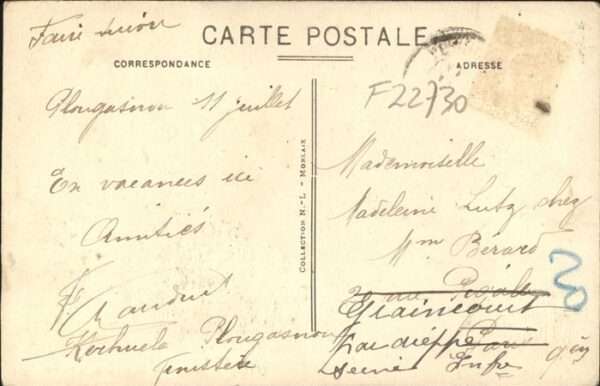 Faire suivre
CARTE POSTALE
CORRESPONDANCE
ADRESSE
F22730
Plougasnou 11 juillet
En vacances ici
Amitiés
Plougasnou
Finistère
COLLECTION N.-L. - MORLAIX
Mademoiselle
Madeleine Lutz chez
Mme Bérard
rue Pigalle
Graincourt
par dieppe Paris 9em
Seine Infre